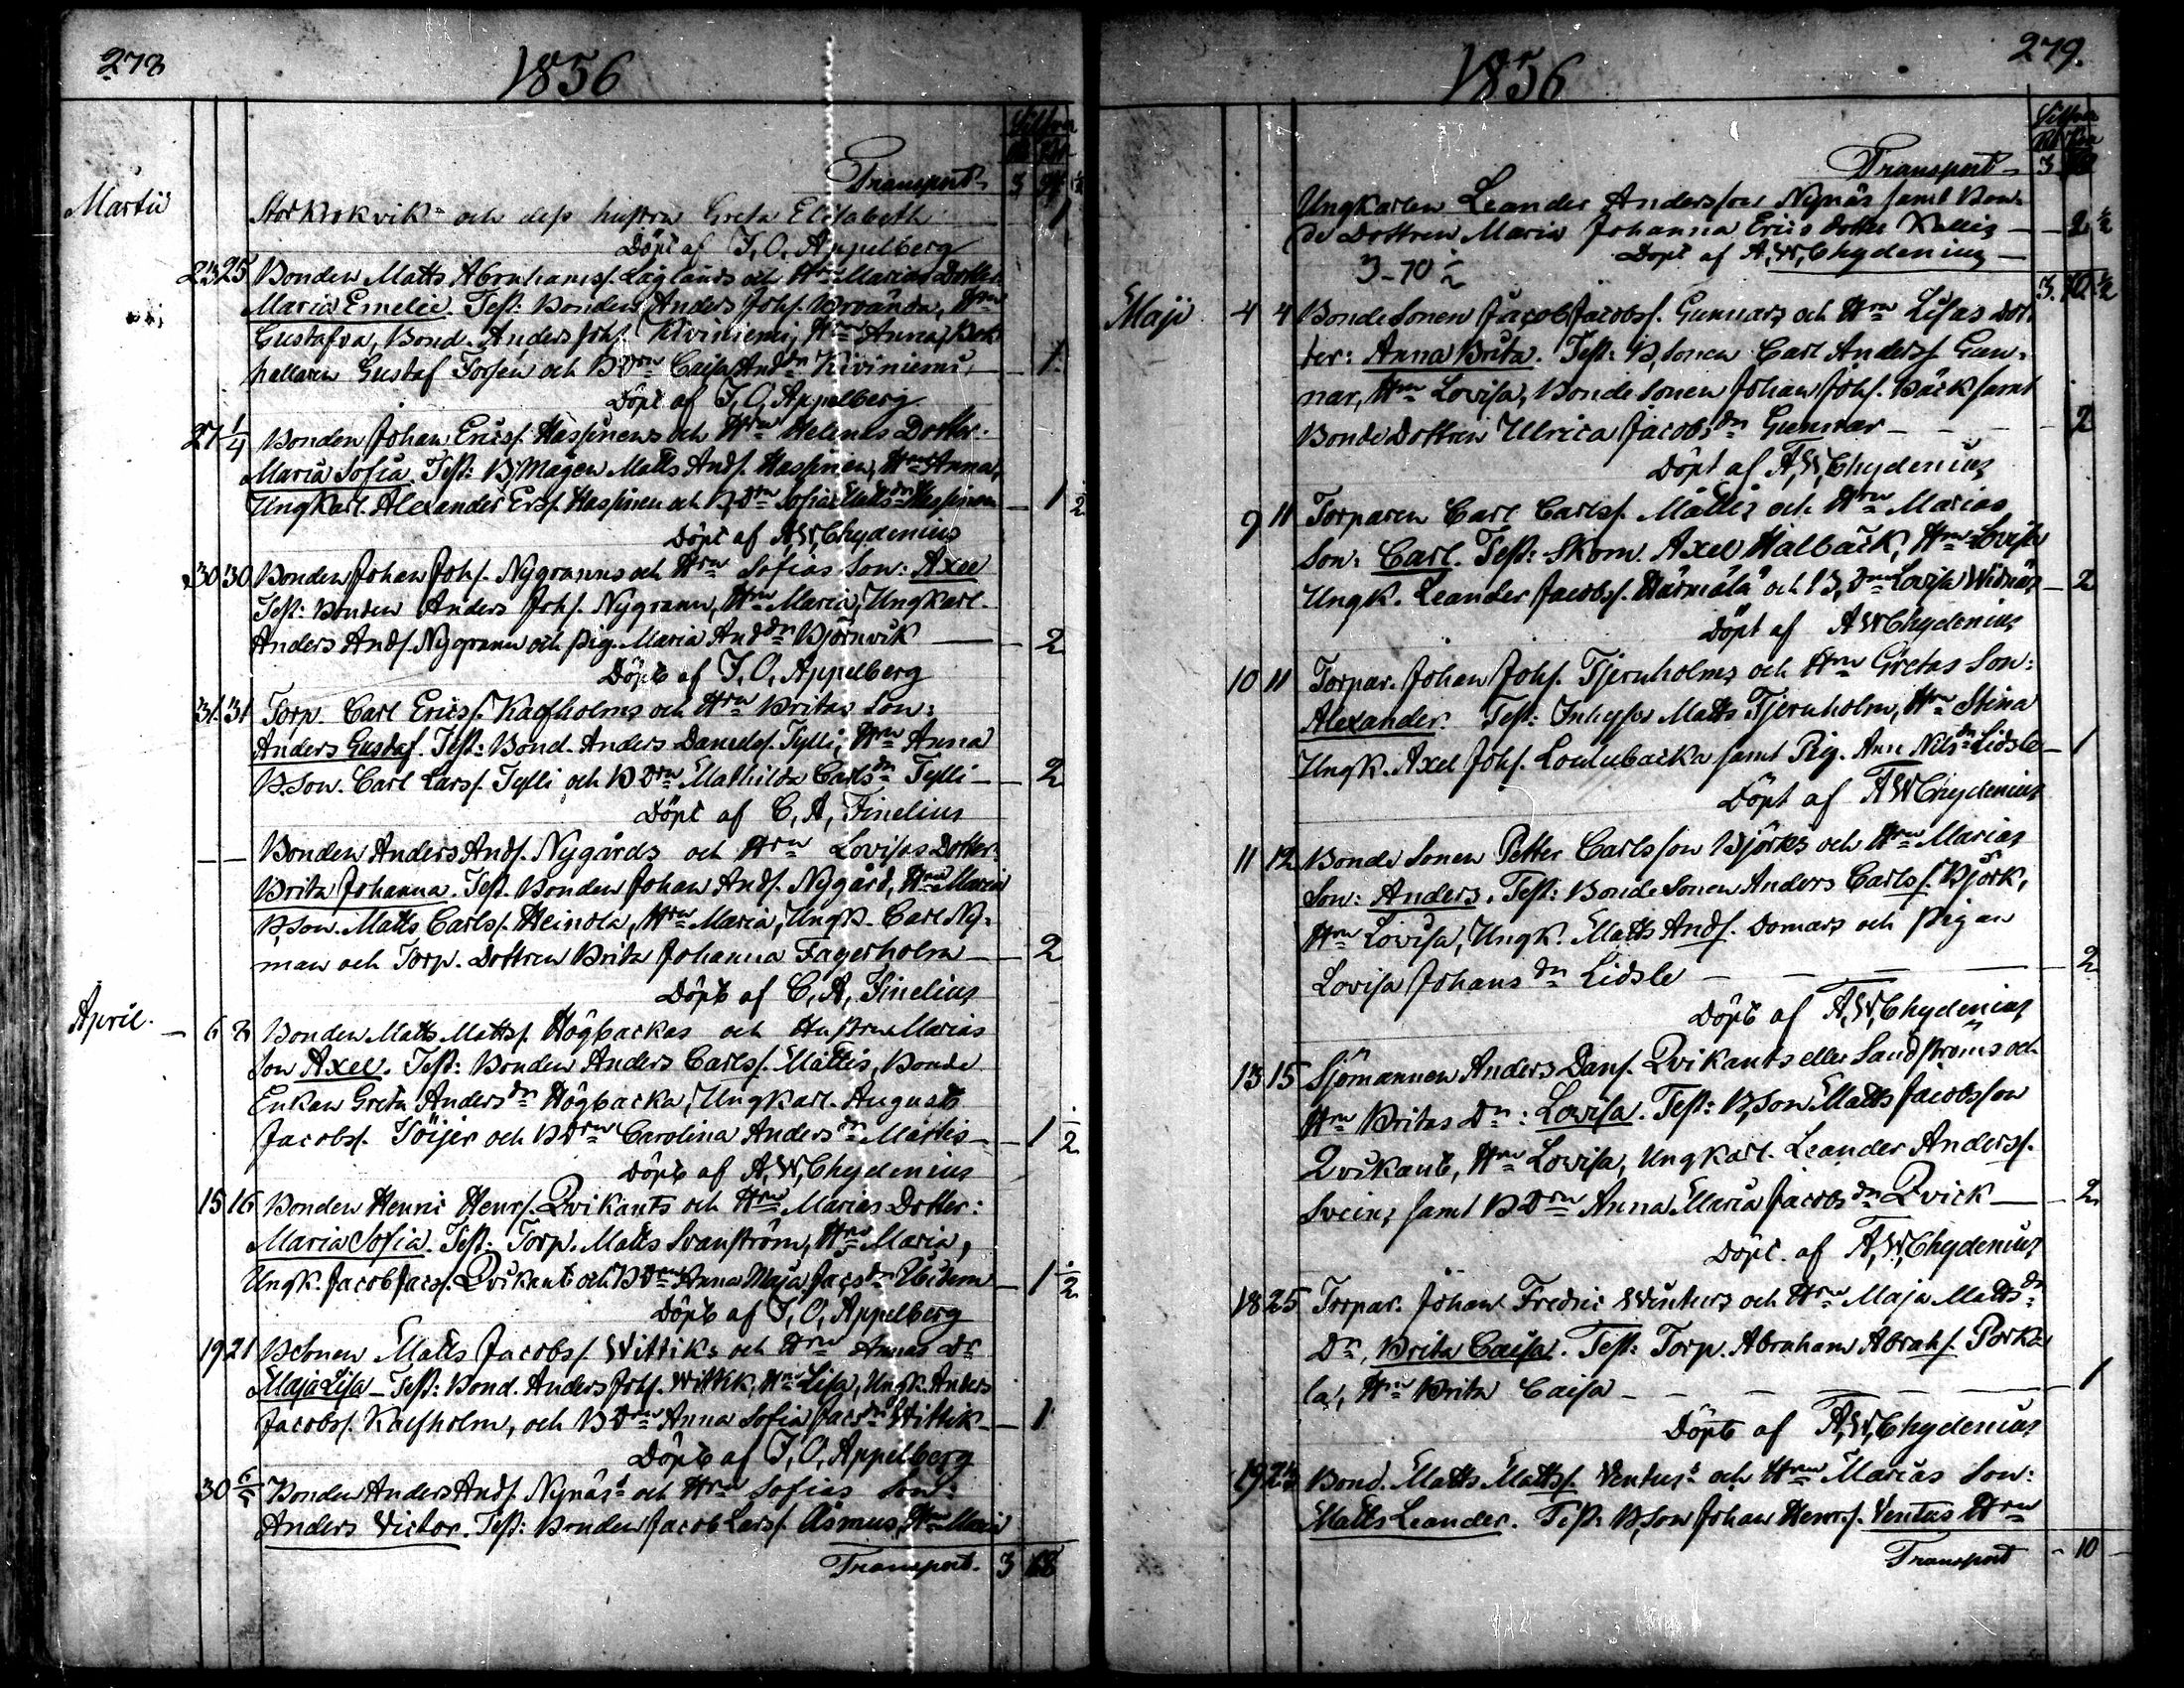 278
1856
Silfver
Transport 3
Martii
Storkrokvik och dess hustru Greta Elisabeth 1
Döpt af J. O. Appelberg
23 25 Bonden Matts Abrahamss. Laglands och Hru Marias Dotter:
Maria Emelie. Test: Bonden Anders Johs. , Hru
Gustafva, Bond. Anders Johs. Kiviniemi, Hru Anna, Bok
hallaren Gustaf Forsén och BDrn Caisa Andsdr Kiviniemi, — 1
Döpt af J. O. Appelberg
27 1/4 Bonden Johan Ericss. Hassinens och Hru Helenas Dotter:
Maria Sofia. Test: B,Mågen Matts Ands. Hassinen, Hru Anna,
Ungkarl. Alexander Erss. Hassinen och B,Drn Sofia Mattsdr Hassinen — 1 1/2
Döpt af A. W. Chydenius
30 30 Bonden Johan Johs. Nygranns och Hru Sofias Son: Axel
Test: Bonden Anders Johs. Nygrann, Hru Maria, Ungkarl.
Anders Ands. Nygrann och pig. Maria Anddr Björnvik — 2
Döpt af J. O. Appelberg
31. 31 Torp. Carl Ericss. Kalfholms och Hru Britas Son:
Anders Gustaf. Test: Bond. Anders Danielss. Tylli, Hru Anna
B.Son. Carl Larss. Tylli och B Drn Mathilda Carlsdr Tylli — 2
Döpt af C. A. Finelius
— — Bonden Anders Ands. Nygårds och Hru Lovisas Dotter:
Brita Johanna. Test. Bonden Johan Ands. Nygård, Hru Maria
B,Son. Matts Carlss. Heinola, Hru Maria, Ungk. Carl Ny-
man och Torp. Dottren Brita Johanna Fagerholm — 2
Döpt af C. A. Finelius
April. — 6 8 Bonden Matts Mattss. Högbackas och Hustru Marias
Son Axel. Test: Bonden Anders Carlss. Mattis, Bonde
Enkan Greta Andersdr Högbacka, Ungkarl. August
Jacobss. Töijer och B Drn Carolina Andersdr Mattis — 1 1/2
Döpt af A. W. Chydenius
15 16 Bonden Henric Henrs. Qvikants och Hru Marias Dotter:
Maria Sofia. Test: Torp. Matts Svanström, Hru Maria,
Ungk. Jacob Jacs. Qvikant och B Drn Anna Maja Jacsdr Ibidem — 1 1/2
Döpt af J. O. Appelberg
19 21 BSonen Matts Jacobss. Wittiks och Hru Annas Dr
Maja Lisa — Test: Bond. Anders Johs. Wittik, Hru Lisa, Ungk. Anders
Jacobss. Kalfholm, och B Drn Anna Sofia Jacsdr Wittik — 1
Döpt af J. O. Appelberg
30 6/5 Bonden Anders Ands. Nynäs's och Hru Sofias Son:
Anders Victor. Test: Bonden Jacob Larss. Åsmus, Hru Maria
Transport. 3 68
279.
1856
Silfver
Transport 3
Ungkarlen Leander Andersson Nynäs samt Bon-
de Dottren Maria Johanna Erics dotter Kallis — 2 1/2
3-70 1/2
Döpt af A. W. Chydenius —
3. 70 1/2
Maji 4 4 BondeSonen Jacob Jacobss. Gunnars och Hru Lisas Dot-
ter: Anna Brita. Test: B,Sonen Carl Anderss. Gun-
nar, Hru Lovisa, Bonde Sonen Johan Johs. Bäck samt
BondeDottren Ulrica Jacobsdr Gunnar — 2
Döpt af A. W. Chydenius
9 11 Torparen Carl Carlss. Mattis och Hru Marias
Son: Carl. Test: Skom. Axel Halbäck, Hru Lovisa
Ungk. Leander Jacobss. Härmälä och B,Drn Lovisa Widnäs — 2
Döpt af A W Chydenius
10 11 Torpar. Johan Johs. Tjernholms och Hru Gretas Son:
Alexander. Test: Inhyses Matts Tjernholm, Hru Stina
Ungk. Axel Johs. Loulubacka samt Pig. Ann Nilsdr Lidsle — 1
Döpt af A W Chydenius
11 12 Bonde Sonen Petter Carlsson Björks och Hru Marias
Son: Anders. Test: Bonde Sonen Anders Carlss. Björk,
Hru Lovisa, Ungk. Matts Ands. Domars och Pigan
Lovisa Johansdr Lidsle — 2
Döpt af A. W. Chydenius
13 15 Sjömannen Anders Dans. Qvikants eller Sandströms och
Hru Britas Dr: Lovisa. Test: B,Son Matts Jacobsson
Qvikant, Hru Lovisa, Ungkarl. Leander Anderss.
Sveins samt B Drn Anna Maria Jacobsdr Qvick — 2
Döpt af A. W. Chydenius
18 25 Torpar. Johan Fredric Winters och Hru Maja Mattsdr
Dr, Brita Caisa. Test: Torp. Abraham Abrahs. Porka-
la, Hru Brita Caisa — 1
Döpt af A. W. Chydenius
19 23 Bond. Matts Mattss. Ventus's och Hru Marias Son:
Matts Leander. Test: B,Son Johan Henrs. Ventus Hru
Transport — 10 —